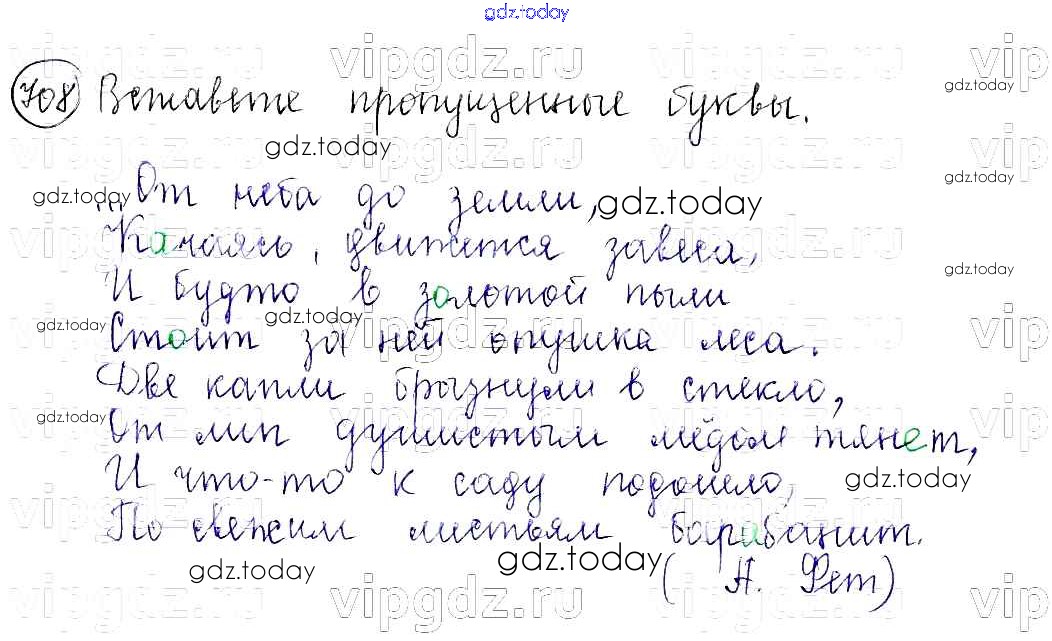 gdz.today
708 Вставьте пропущенные буквы.
...От неба до земли,
Качаясь, движется завеса,
И будто в золотой пыли
Стоит за ней опушка леса.
Две капли брызнули в стекло,
От лип душистым мёдом тянет,
И что-то к саду подошло,
По свежим листьям барабанит.
(Н. Фет)